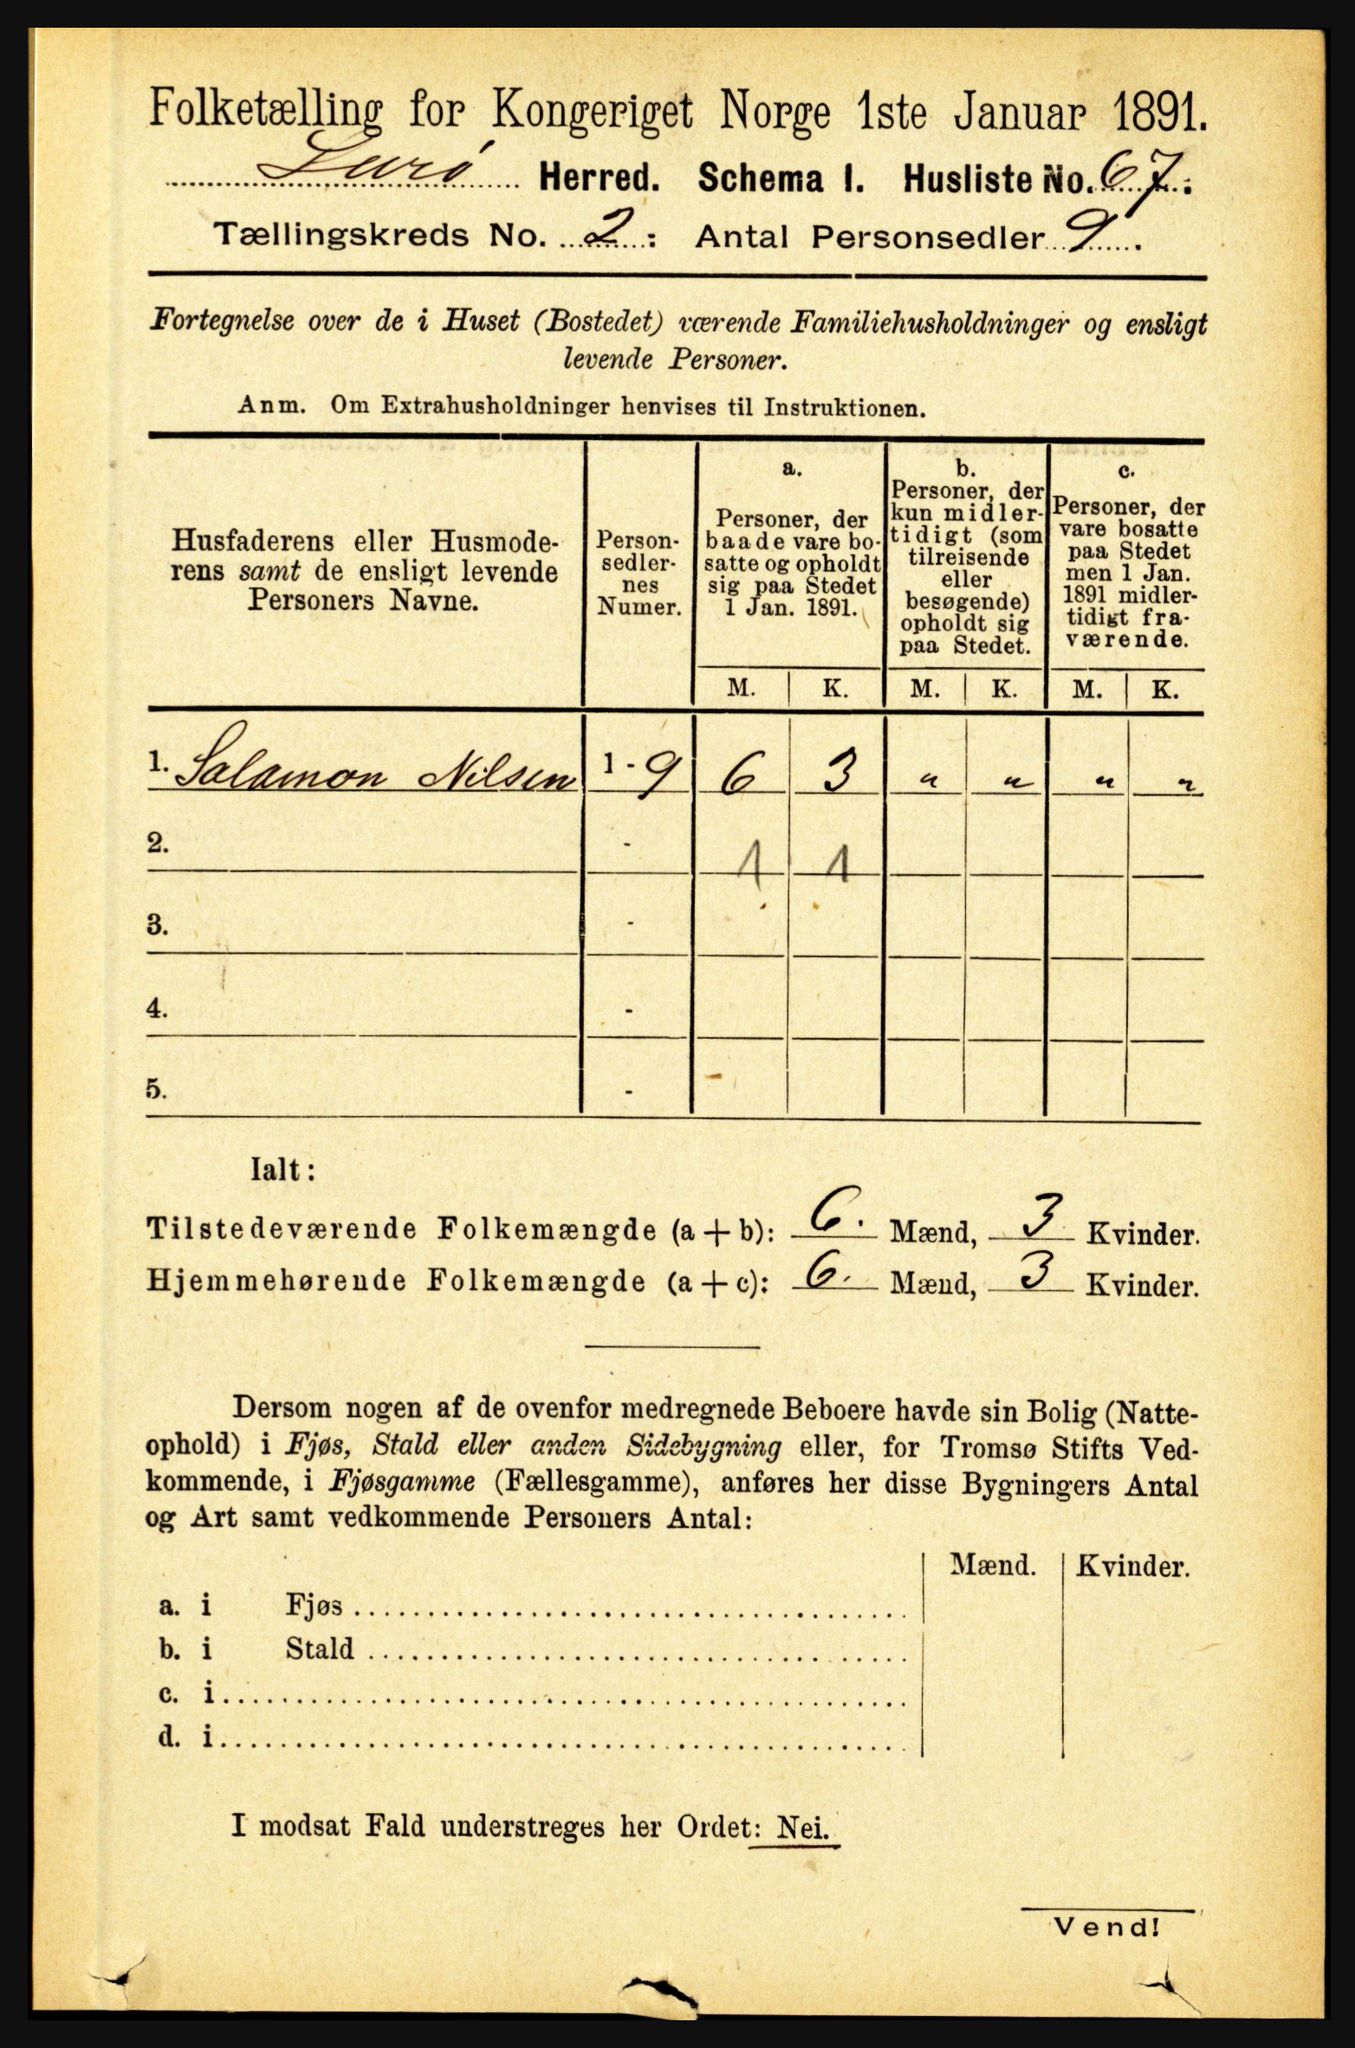 Folketælling for Kongeriget Norge 1ste Januar 1891.
Lurø Herred. Schema I. Husliste No. 67.
Tællingskreds No. 2: Antal Personsedler 9.
Fortegnelse over de i Huset (Bostedet) værende Familiehusholdninger og ensligt
levende Personer.
Anm. Om Extrahusholdninger henvises til Instruktionen.
Husfaderens eller Husmode-
rens samt de ensligt levende
Personers Navne.
Person-
sedler-
nes
Numer.
a.
Personer, der
baade vare bo-
satte og opholdt
sig paa Stedet
1 Jan. 1891.
b.
Personer, der
kun midler-
tidigt (som
tilreisende
eller
besøgende)
opholdt sig
paa Stedet.
c.
Personer, der
vare bosatte
paa Stedet
men 1 Jan.
1891 midler-
tidigt fra-
værende.
M. K. M. K. M. K.
1. Salamon Nilsen 1 - 9 6 3 " " " "
2. - 1 1
3. -
4. -
5. -
Ialt:
Tilstedeværende Folkemængde (a + b): 6. Mænd, 3 Kvinder.
Hjemmehørende Folkemængde (a + c): 6. Mænd, 3 Kvinder.
Dersom nogen af de ovenfor medregnede Beboere havde sin Bolig (Natte-
ophold) i Fjøs, Stald eller anden Sidebygning eller, for Tromsø Stifts Ved-
kommende, i Fjøsgamme (Fællesgamme), anføres her disse Bygningers Antal
og Art samt vedkommende Personers Antal:
Mænd. Kvinder.
a. i Fjøs
b. i Stald
c. i
d. i
I modsat Fald understreges her Ordet: Nei.
Vend!